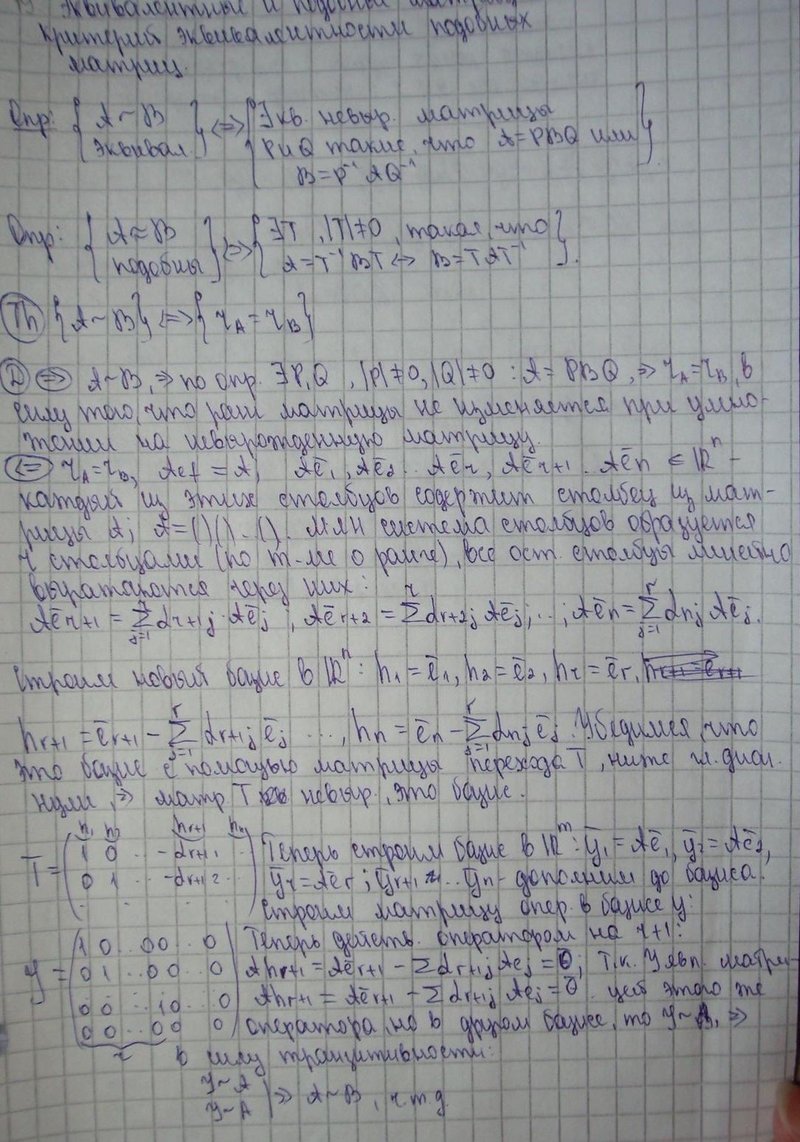 Эквивалентные и подобные матрицы
критерий эквивалентности подобных
матриц.
Опр: { A ~ B эквивал } <=> { ∃ кв. невыр. матрицы
P и Q такие, что A = PBQ или
B = P⁻¹AQ⁻¹ }
Опр: { A ≈ B подобны } <=> { ∃T, |T|≠0, такая, что
A = T⁻¹BT <-> B = TAT⁻¹ }.
Th {A ~ B} <=> {r_A = r_B}
D => A~B, => по опр. ∃P,Q, |P|≠0, |Q|≠0 : A = PBQ, => r_A = r_B, в
силу того, что ранг матрицы не изменяется при умно-
жении на невырожденную матрицу.
<= r_A = r_B, Aef = A, Aē₁, Aē₂ .. Aēr, Aēr+1 .. Aēn ∈ ℝⁿ -
каждый из этих столбцов содержит столбец из мат-
рицы A; A = ()()..(). МЛН система столбцов образуется
r столбцами (по т-ме о ранге), все ост. столбцы линейно
выражаются через них:
Aēr+1 = Σ_{j=1}^r dr+1j · Aēj, Aēr+2 = Σ dr+2j Aēj; ..; Aēn = Σ_{j=1}^r dnj Aēj.
Строим новый базис в ℝⁿ: h₁ = ē₁, h₂ = ē₂, hr = ēr,
hr+1 = ēr+1 - Σ_{j=1}^r dr+1j ēj ..., hn = ēn - Σ_{j=1}^r dnj ēj. Убедимся, что
это базис с помощью матрицы перехода T, ниже гл. диаг.
нули, => матр T невыр., это базис.
h₁ h₂ hr+1 hn
T = ( 1 0 .. -dr+1 1 .. Теперь строим базис в ℝᵐ: ȳ₁ = Aē₁, ȳ₂ = Aē₂,
0 1 .. -dr+1 2 .. ȳr = Aēr; ȳr+1 .. ȳn - дополним до базиса.
. . . ) Строим матрицу опер. в базисе y:
y = ( 1 0 .. 0 0 .. 0 Теперь действ. оператором на r+1:
0 1 .. 0 0 .. 0 Ahr+1 = Aēr+1 - Σ dr+1j Aej = 0̄; т.к. y явл. матри-
0 0 .. 1 0 .. 0 Ahr+1 = Aēr+1 - Σ dr+1j Aej = 0̄ цей этого же
0 0 .. 0 0 0 ) оператора, но в другом базисе, то y ~ A, =>
r в силу транзитивности:
y ~ A
y ~ A => A ~ B, ч.т.д.